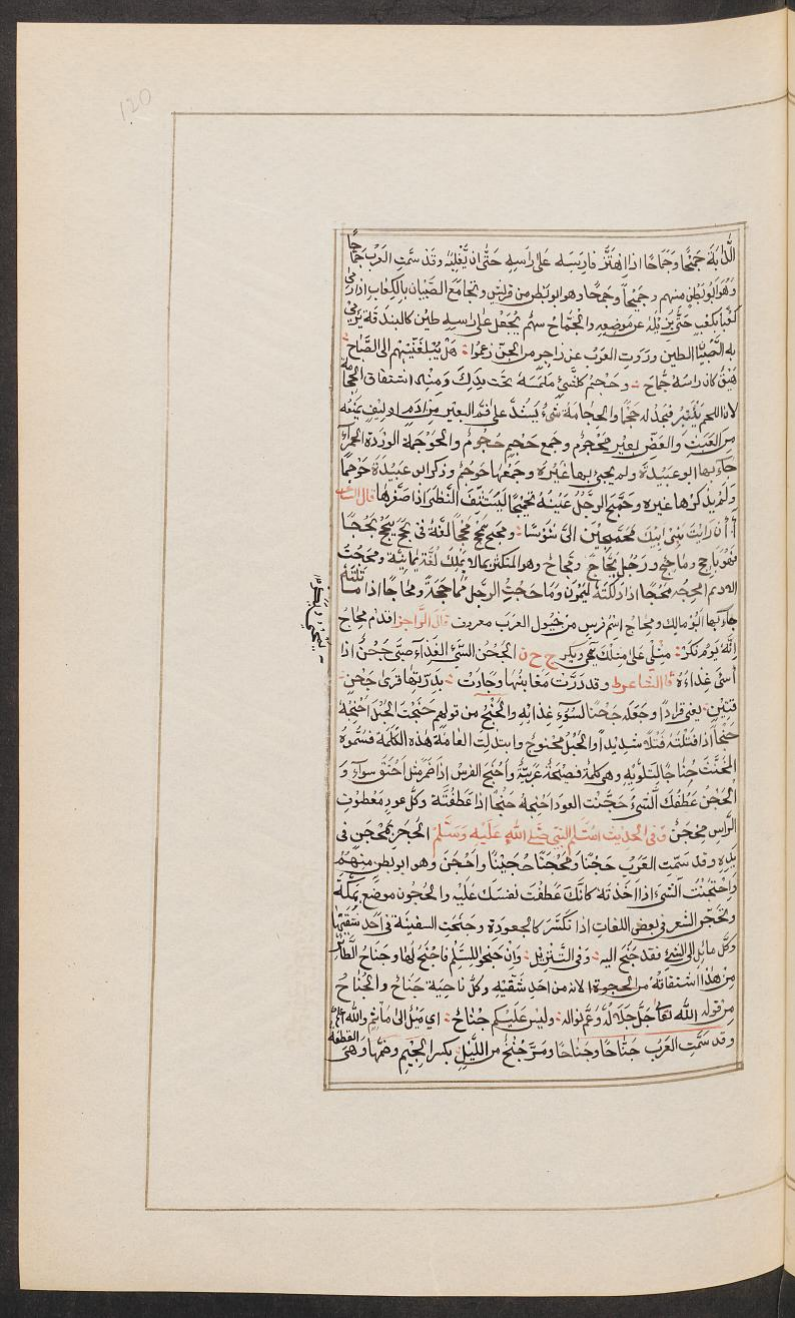 120
الدَّابَّةُ جَمْحًا وَجِمَاحًا اذا اِهْتَزَّ فارِسَه عَلى رَاسِهِ حَتَّى ان يَغْلِبَهُ وَقَدْ سَمَّتِ العَرَبُ جَمَّاحًا
وَهُوَ اَبُو بَطْنٍ منهم وجُمَيْحاً وجُمَحًا وهو ابو بَطْنٍ من قريش وتجامَعَ الصِّبْيَان بِالكِعَابِ اذا رمى
كَعْبًا بِكَعْبٍ حَتّى يُزِيلَهُ عن مَوْضِعِهِ والجُمَّاحُ سهم يُجْعَلُ عَلى راسِهِ طين كالبندقة يرمى
به الصِّبْيَانُ الطين وَرَوَتِ العَرَبُ عن راجز من الجنّ زعَمُوا هَلْ يُبْلِغَنِّيْهِمْ الى الصَّبَاحْ
هَيْقٌ كان رَاسَهُ جُمَّاحْ وحَجْمُ كلِّ شَيْءٍ مَلْمَسُهُ تحت يدِكَ وَمِنْه اشتقاق الحِجَامَة
لانّ اللحم يَنْتَبِرُ فتجدُ له حَجْمًا والحِجامَة شَيْءٌ يُشَدُّ على فم البعير من اَدَمٍ او لِيفٍ يمنعه
مِنَ العَبَثِ والعَضِّ بعِيْر مَحْجُوْمٌ وجمع حَجْمٍ حُجُومٌ والحَوْجَمَة الوَرْدَة الحَمْرَآء
جآءَ بها ابو عبيدة ولم يجئ بها غَيْرُه وجَمْعُها حَوْجَمٌ وذكر ابو عبيدة حَوْجَمًا
وَلَمْ يذكرْها غيره وحَمَّجَ الرجُلُ عَيْنَهُ تَحْمِيْجًا لَيَسْتَشِفَّ النَّظَرَ اذا صَغَّرَهَا قال الشاعر
أ أن رَايْتَ بَنِيْ اَبِيْكَ مُحَمِّجِيْنَ الىَّ شُوْسًا ومجح يمجح مُجْحًا لغة في بَجَحَ يَبْجَحُ بَجْحًا
فَهُوَ بَاجِحٌ ومَاجِحٌ ورَجُلٌ بَجَّاحٌ ومَجَّاح وهو المتكثر بما لا يَمْلِكُ لغَة يمانِيَة ومَحَجْتُ
الاديم امحجه مَحْجًا اذا دَلَكْتَهُ لِيَمْرُن وَمَاحَجْتُ الرجلَ مُمَاحَجَةً ومِحَاجًا اذا مَاطَلْتَه
جآءَ بها ابُوْ مَالِك ومِحَاج اسْم فرس من خُيُول العَرَب معروف قال الرَّاجز اقدم مِحَاجُ
اِنَّهُ يَوْم نُكُرْ مِثْلِيْ عَلى مِثْلِكَ يَحْمِيْ وَيَكُرّ ج ح ن الجَحِنُ السَّيِّئُ الغِذَاءِ صَبِيٌّ جَحِنٌ اذا
أُسِئَ غِذَاؤُهُ قال الشاعر وقد دَرَّتْ مَغَابِنُها وجَادَتْ بِدِرَّتِها قِرى جَحِنٍ
قَتِيْنِ يعني قرادًا وجَعَله جَحِنًا لسُوْءِ غِذائِهِ والحَنْجُ من قولِهِم حَنَجْتُ الحَبْلَ اَحْنِجُهُ
حَنْجاً اذا فَتَلْتَهُ فَتْلًا شدِيْداً والحَبْلُ مَحْنُوْجٌ وابتذلت العَامَّة هذه الكَلِمَة فسَمَّوْا
المُخَنَّثَ حِنَاجًا لِتَلَوِّيْهِ وهي كلمة فصيْحَة عَرَبيَّة وأَحْنَج الفرس اذا ضَمُرَ مثل اَحْنَقَ سوآء وَ
الحَجْنُ عَطْفُكَ الشَّيْءَ حَجَنْتُ العودَ اَحْجِنُهُ حَجْنًا اذا عَطَفْتَهُ وكلُّ عودٍ مَعْطُوْفِ
الرَّاسِ مِحْجَنٌ وَفي الحديث استلم النبي صَلَّى الله عَلَيْهِ وَسَلَّم الحَجَر بمِحْجَنٍ في
يَدِهِ وقد سَمَّتِ العَرَبُ حَجْنًا ومِحْجَنًا وحُجَيْنًا واَحْجَنَ وهو ابو بطن مِنْهُم
وَاحْتَجَنْتُ الشيءَ اذا اَخَذتَهُ كانَّكَ عَطَفْتَ نفسَكَ عَلَيْهِ والحُجُون موضع بِمَكَّة
وتحَجَّنَ الشَّعر في بعض اللغات اذا تَكَسَّرَ كالجعودة وجَنَحَتِ السفينَة في اَحَد شقيها
وكلّ مائل الى الشيْءِ فقد جَنَح اليه وفي التَّنْزِيْل وَاِنْ جَنَحُوْا لِلسَّلْمِ فَاجْنَحْ لَهَا وجَنَاحُ الطَّائِر
مِنْ هٰذَا اشتقاقُهُ لانه من احَدِ شقَّيْه وكلُّ ناحِيَة جَنَاحٌ والجُنَاحُ
مِنْ قوله الله تعالى جَلَّ جَلَالُهُ وَعَمَّ نَوَالُه وليسَ عَلَيْكم جُنَاحٌ اي مَيْل الى مَأْثَم والله اعلم
وقد سَمَّتِ العَرَبُ جَنَّاحًا وجَنَاحًا ومَرَّ جِنْحٌ من اللَّيْل بكسر الجيم وضمّها وهي القطعة